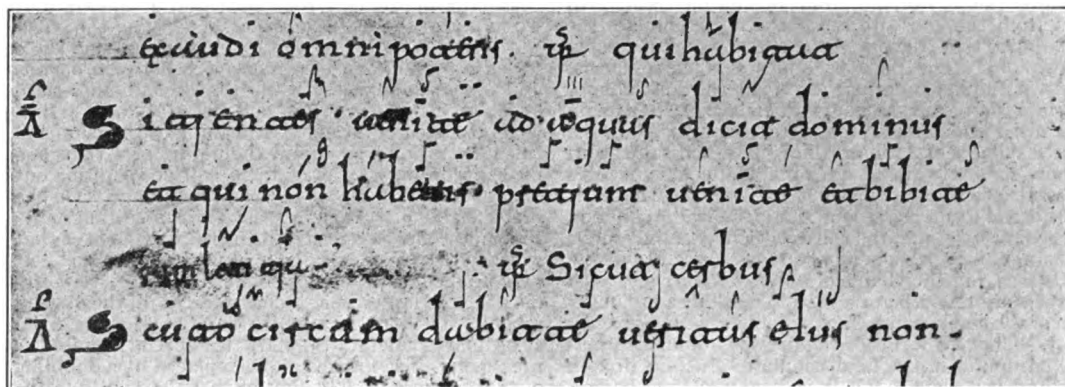 exaudi omnipotens. ps qui habitat
A Sitientes uenite ad aquas dicit dominus
et qui non habetis pretium uenite et bibite
cum letitia ps Sicut cerbus
A Scuto circum dabit te ueritas eius non